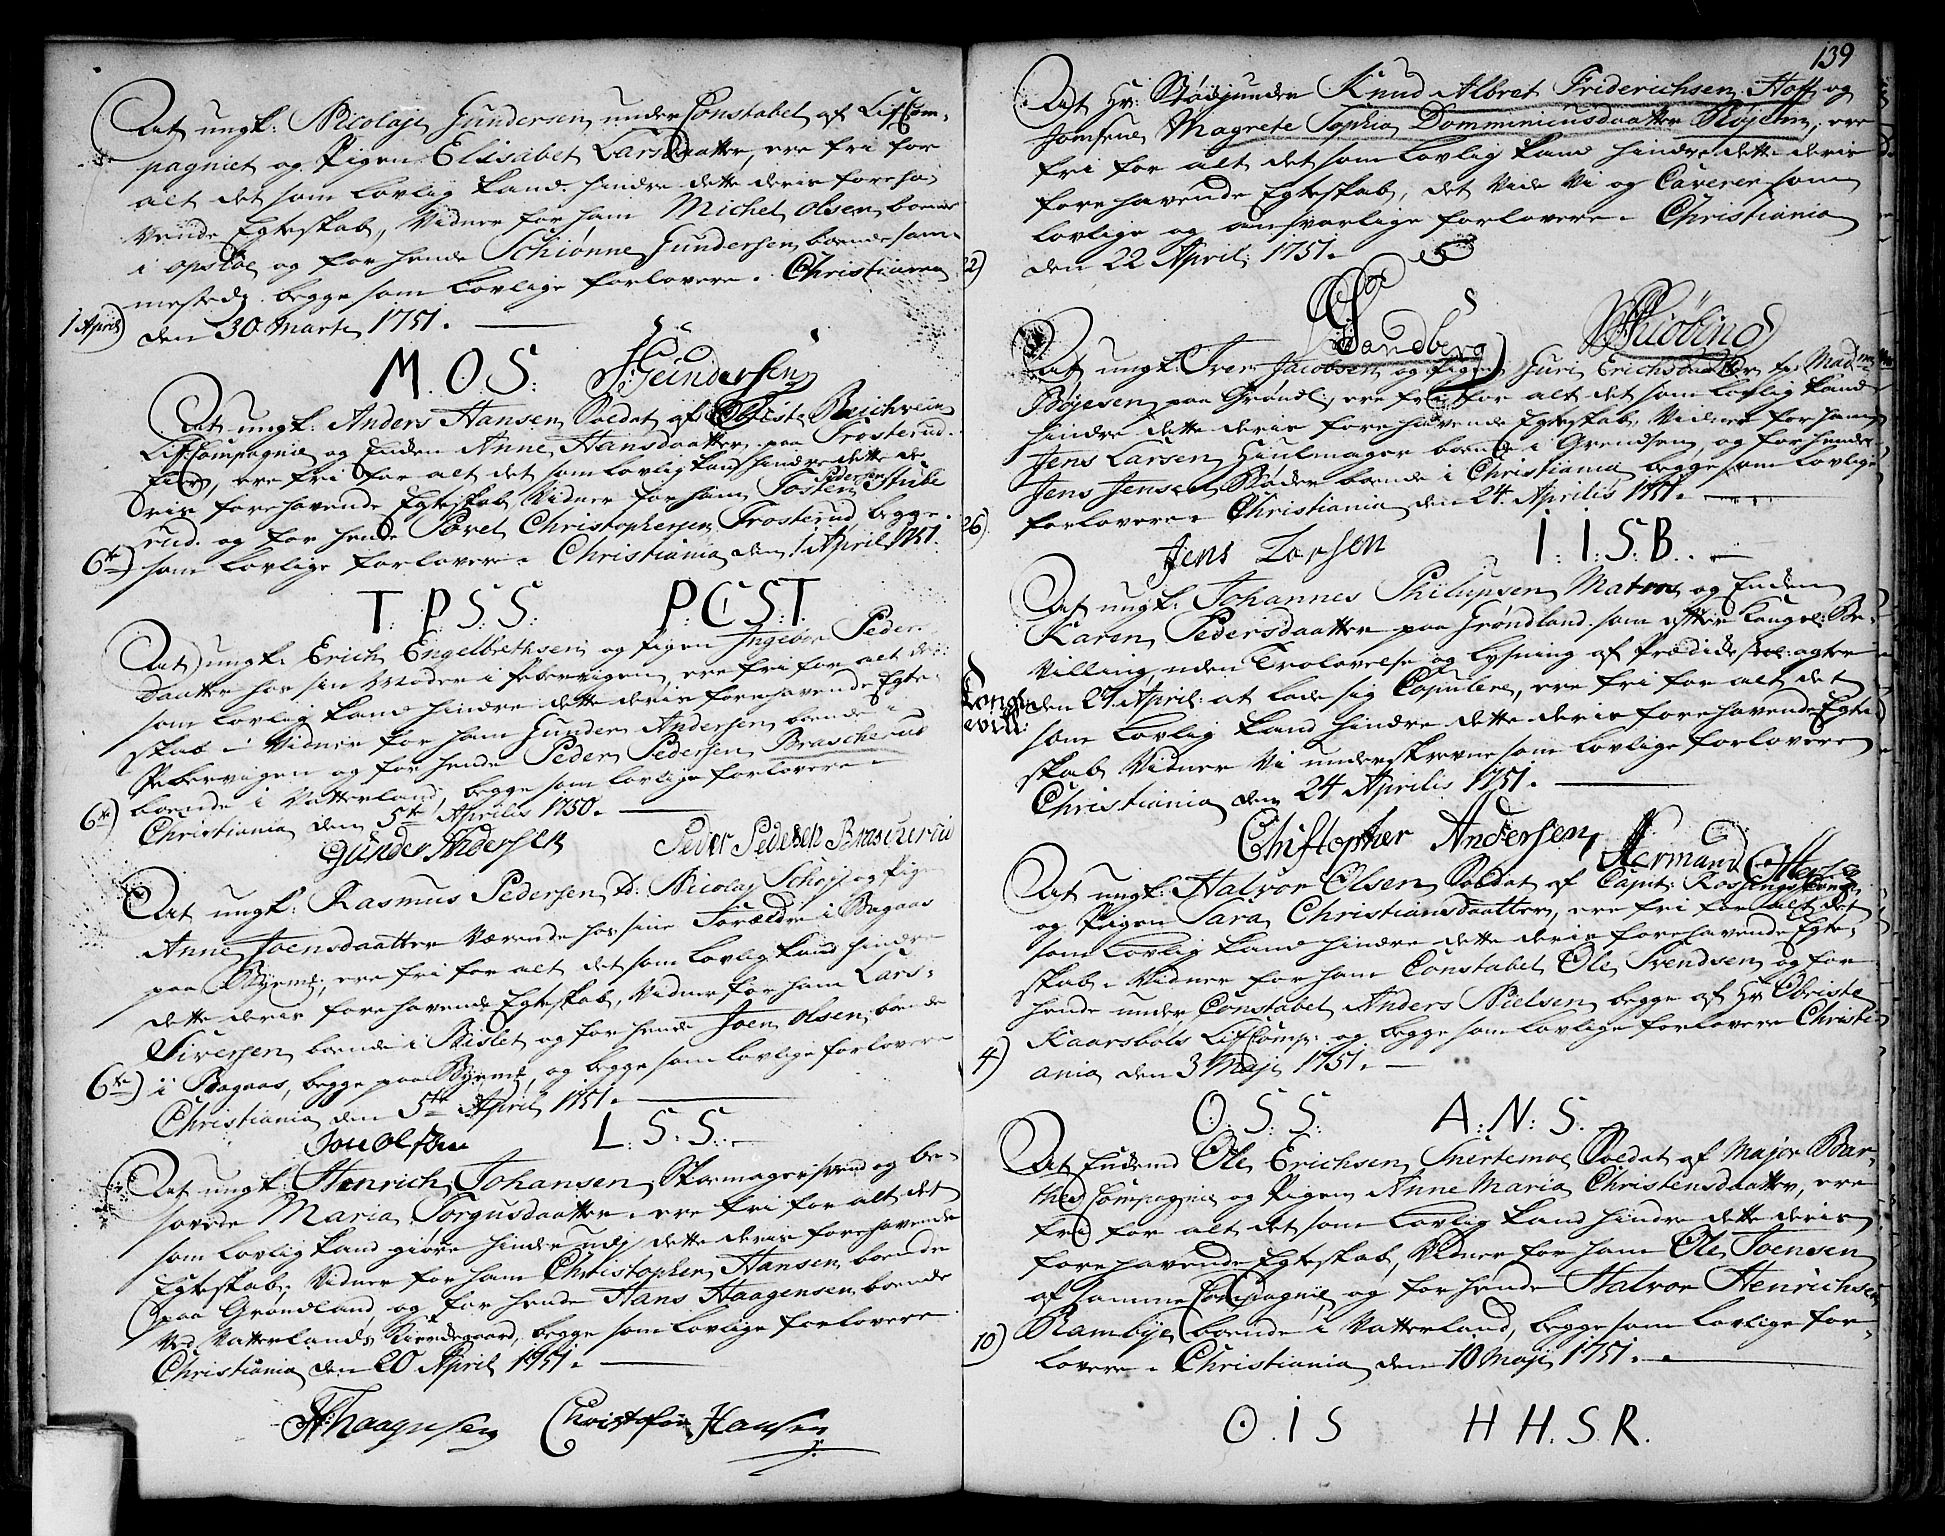 At ungk: Nicolaje Gundersen under Constabel af LifCom-
pagniet og Pigen Elisabet Larsdaatter, ere fri for
alt det som lovlig kand hindre dette deris foreha,
vende Egteskab, Vidner for ham Michel Olsen, boende
i opsloe og for hende Schiønne Gundersen boende sam-
mestedz begge som lovlige forlovere. Christiania
1 April) den 30 Martz 1751.
M. O. S: S: Gundersen
At ungk: Anders Hansen, Soldat af Obriste Reichwein
LifCompagnie og Enken Anne Hansdaatter paa Frosterud
Eier, ere fri for alt det som lovlig kand hindre dette de
ris forehavende Egteskab, Vidner for ham Tosten Pedersen Stube
rud. og for hende Povel Christophersen Frosterud begge
6te) som lovlige forlovere. Christiania den 1 April 1751.
T: P. S: S: P. C. S. T.
At ungk: Erich Engelbrethsen og Pigen Ingebor Peders
daatter hos sin Moder i Pebervigen, ere fri for alt det
som lovlig kand hindre dette deris forehavende Egte-
skab - Vidner for ham Gunder Andersen, boende i
Pebervigen og for hende Peder Pedersen Brascherud
boende i Vatterland, begge som lovlige forlovere.
6te) Christiania den 5te Aprilis 1750.
Gunder Andersen Peder Pedersen Brascherud
At ungk: Rasmus Pedersen, Nicolaj og Pigen
Anne Joensdaatter Værende hos sine Forældre i Bagaas
paa Byemrk, ere fri for alt det som lovlig kand hindre
dette deris forehavende Egteskab, Vidner for ham Lars
Siversen boende i Bislet og for hende Joen Olsen, boende
6te) i Bagaas, begge paa Byemrk, og begge som lovlige forlovere
Christiania den 5te April 1751.
Jon Olsøn L: S: S:
At ungk: Henrich Johansen Skomagersvend og be-
sovede Maria Torgusdaatter, ere fri for alt det
som lovlig kand giøre hinder udj dette deris forehavende
Egteskab, Vidner for ham Christopher Hansen, boende
paa Grønland, og for hende Hans Haagensen, boende
Ved Vatterlands Kierdegaard, begge som lovlige forlovere
Christiania den 20 April 1751.
H: Haagensen Christopher Hansen
139
At Hr: Knud Albret Friderichsen Hoff og
Jomfrue Magrete Sophia Domminicusdaatter, ere
fri for alt det som lovlig kand hindre dette deris
forehavende Egteskab, det Vide Vi og Caverer som
lovlige og ansvarlige forlovere. Christiania
22) den 22 April: 1751.
Sandberg
At ungk: Iver Jacobsen og Pigen Guri Erichsdaatter hos Mad:
Bøjesen paa Grønl:, ere fri for alt det som lovlig kand
hindre dette deris forehavende Egteskab, Vidner for ham
Jens Larsen Hiulmager boende i Grændsen, og for hende
Jens Jensen Bøder boende i Christiania begge som lovlige
26) forlovere. Christiania den 24. Aprilis 1751.
Jens Larsen I: I: S: B.
At ungk: Johannes Philupsen Matros og Enken
Karen Pedersdaatter paa Grøndland som efter Kongel: Be-
villing uden Trolovelse og lysning af Prædikestol agter
Kongl: evill: den 27 April: at lade sig Copulere, ere fri for alt det
som lovlig kand hindre dette deris forehavende Egte
skab, Vidner Vi underskrevne som lovlige forlovere
Christiania den 24 Aprilis 1751.
Christopher Andersen, Hermand
At ungk: Halvor Olsen Soldat af Capit:
og Pigen Sara Christiansdaatter, ere fri for alt det
som lovlig kand hindre dette deris forehavende Egte-
skab. Vidner for ham Constabel Ole Svendsen, og for
hende under Constabel Anders Nielsen, begge af Hr Obriste
Kaarsbøls LifComp: og begge som lovlige forlovere Christi-
4) ania den 3 Maji 1751.
O. S. S. A. N. S.
At Enkemd Ole Erichsen Snertemoe Soldat af Major Bar-
thes Compagnie og Pigen Anne Maria Christensdaatter, ere
fri for alt det som lovlig kand hindre dette deris
forehavende Egteskab, Vidner for ham Ole Joensen
af samme Compagnie, og for hende Halvor Henrichsen
Rambye boende i Vatterland, begge som lovlige for-
10) lovere. Christiania den 10 Maji 1751.
O. I S H H. S. R.